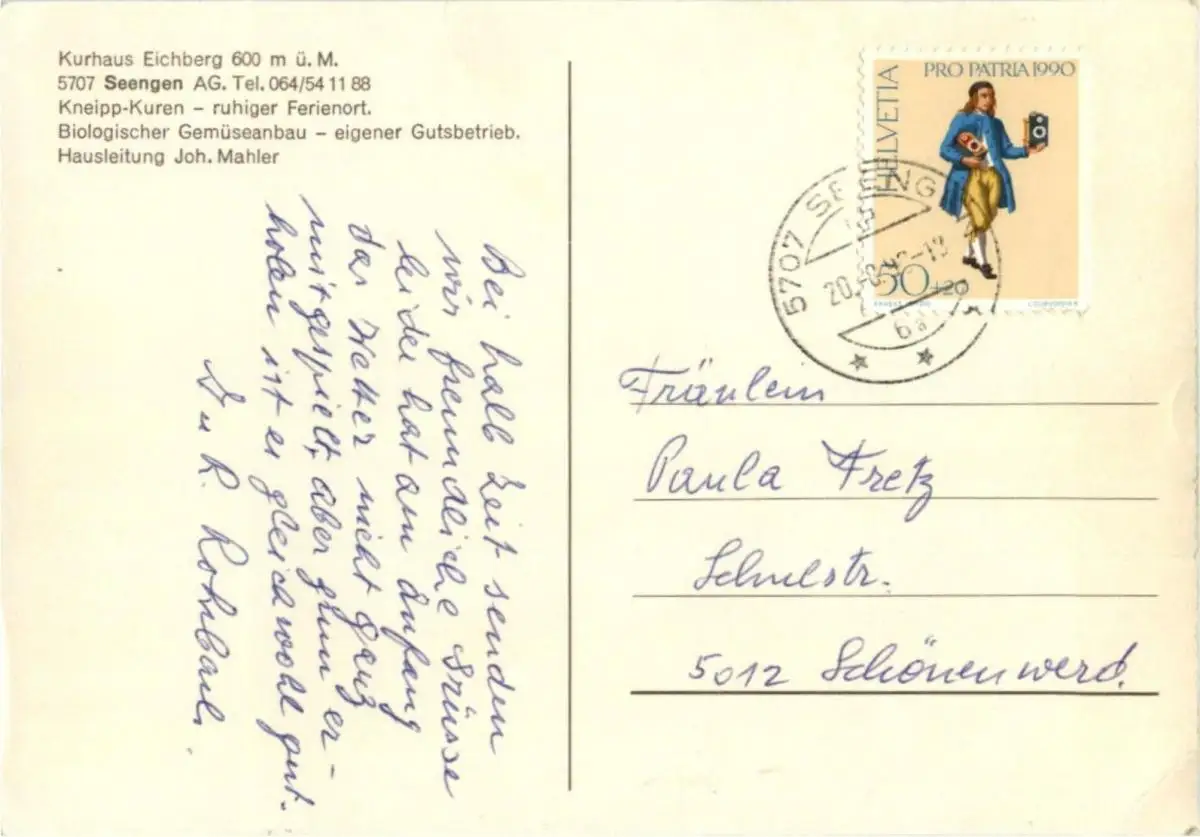 Kurhaus Eichberg 600 m ü. M.
5707 Seengen AG. Tel. 064/54 11 88
Kneipp-Kuren – ruhiger Ferienort.
Biologischer Gemüseanbau – eigener Gutsbetrieb.
Hausleitung Joh. Mahler
Bei halb Zeit senden
wir freundliche Grüsse
leider hat am Anfang
das Wetter nicht ganz
mitgespielt, aber zum er-
holen ist es gleichwohl gut.
R. Rohrbach.
HELVETIA
PRO PATRIA 1990
50+20
5707 SEENG
Fräulein
Paula Fretz
Schulstr.
5012 Schönenwerd.